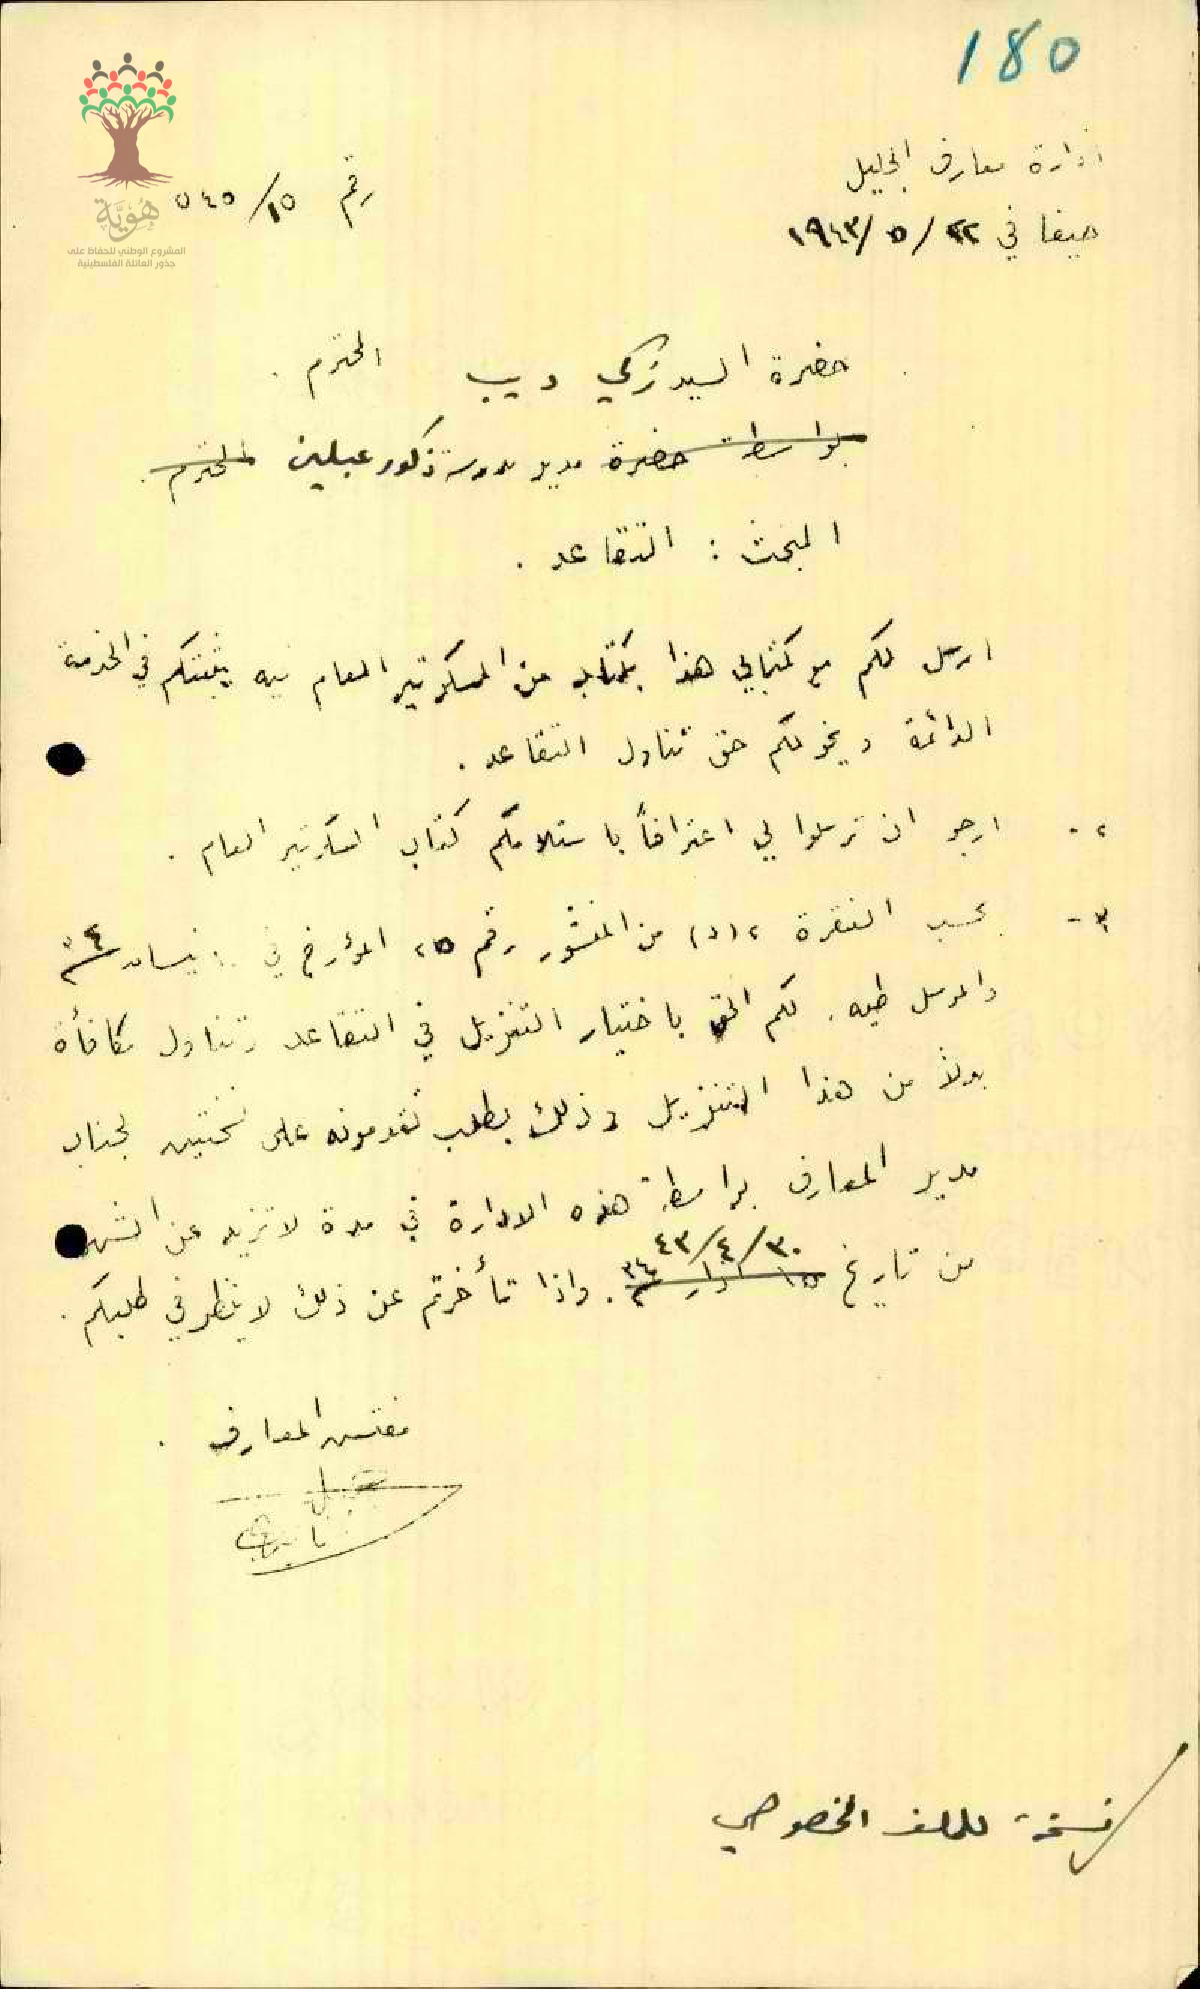 180
ادارة معارف الجليل
رقم ١٥/٥٤٥
حيفا في ٢٢/٥/١٩٤٣
هُوِيَّة
المشروع الوطني للحفاظ على
جذور العائلة الفلسطينية
حضرة السيد زكي ديب المحترم .
بواسطة حضرة مدير مدرسة ذكور عبلين المحترم .
المبحث : التقاعد .
ارسل لكم مع كتابي هذا كتاب من السكرتير العام فيه يثبتكم في الخدمة
الدائمة ويخولكم حق تناول التقاعد .
٢ - ارجو ان ترسلوا لي اعترافاً باستلامكم كتاب السكرتير العام .
٣ - بحسب الفقرة ٢ (د) من المنشور رقم ٢٥ المؤرخ في نيسان
والمرسل طيه . لكم الحق باختيار التنزيل في التقاعد وتناول مكافأة
بدلاً من هذا التنزيل وذلك بطلب تقدمونه على نسختين لجناب
مدير المعارف بواسطة هذه الادارة في مدة لا تزيد عن الشهر
٣٠/٤/٤٣
من تاريخ ١٥ اذار . واذا تأخرتم عن ذلك لا ينظر في طلبكم .
مفتش المعارف .
نسخة للملف الخصوصي